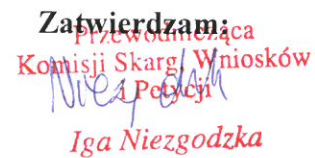 Zatwierdzam:
Przewodnicząca
Komisji Skarg, Wniosków
i Petycji
Iga Niezgodzka